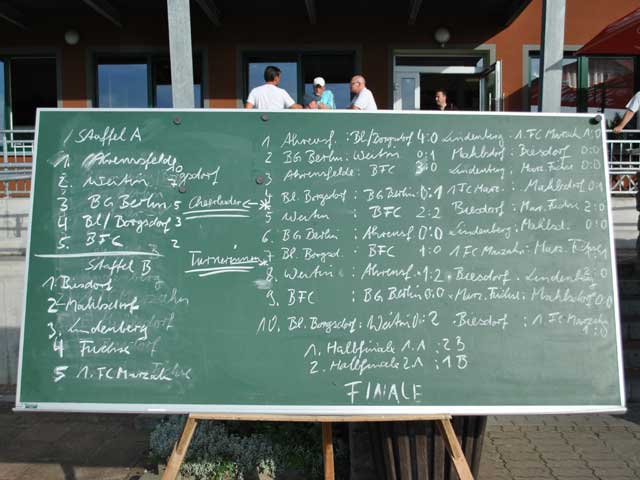 Staffel A
1. Ahrensfelde 10
2. Weitin 7
3 BG Berlin 5
4 Bl/Borgsdorf 3
5. BFC 2
Cheerleader
Turnerinnen
Staffel B
1. Biesdorf
2. Mahlsdorf
3. Lindenberg
4 Füchse
5 1. FC Marzahn
1 Ahrensf. : Bl/Borgsdorf 4:0 Lindenberg : 1. FC Marzah 1:0
2 BG Berlin : Weitin 0:1 Mahlsdorf : Biesdorf 0:0
3 Ahrensfelde : BFC 3:0 Lindenberg : Marz. Füchse 1:0
4 Bl. Borgsdorf : BG Berlin 0:1 1 FC Marz. : Mahlsdorf 0:1
5 Weitin : BFC 2:2 Biesdorf : Marz. Füchse 2:0
6. BG Berlin : Ahrensf. 0:0 Lindenberg : Mahlsd. 0:0
7 Bl. Borgsd. : BFC 1:0 1 FC Marzahn : Marz. Füchse
8. Weitin : Ahrensf. 1:2 Biesdorf : Lindenberg 2:0
9. BFC : BG Berlin 0:0 Marz. Füchse : Mahlsdorf 0:0
10. Bl. Borgsdorf : Weitin 0:2 Biesdorf : 1. FC Marzahn 1:0
1. Halbfinale 1A : 2B
2. Halbfinale 2A : 1B
FINALE